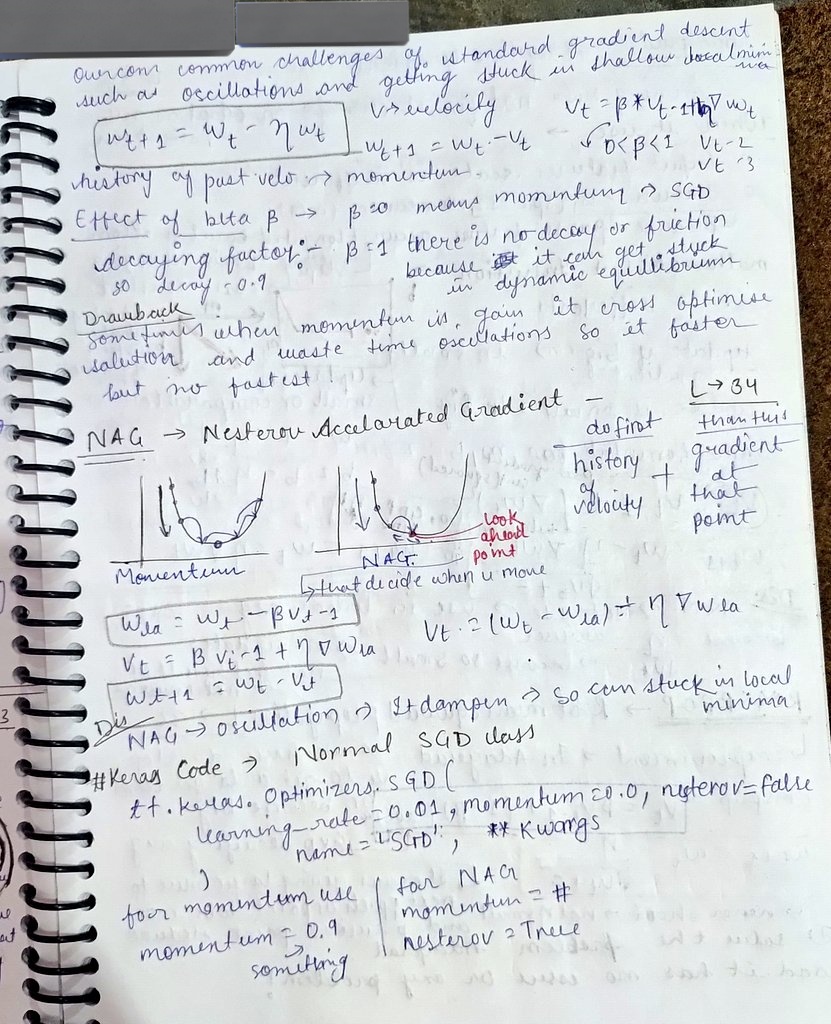 overcom common challenges of standard gradient descent
such as oscillations and getting stuck in shallow local minima
V → velocity
Vt = β * Vt-1 + η ∇ wt
wt+1 = wt - η wt
wt+1 = wt - vt
0<β<1
Vt-2
Vt-3
history of past velo → momentum
Effect of beta β → β=0 means momentum → SGD
decaying factor :- β=1 there is no decay or friction
because it can get stuck
so decay = 0.9
in dynamic equillibrium
Drawback
sometimes when momentum is gain it cross optimise
solution and waste time oscillations so it faster
but no fastest !
NAG → Nesterov Accelarated Gradient -
L → 34
do first
history
of
velocity
+
than this
gradient
at
that
point
look
ahead
point
Momentum
NAG.
→ that decide when u move
wla = wt - βvt-1
Vt = (wt - wla) + η ∇ wla
Vt = β vt-1 + η ∇ wla
wt+1 = wt - vt
Dis
NAG → oscillation → It dampen → so can stuck in local
minima
#Keras Code → Normal SGD class
tf. keras. optimizers. SGD (
learning_rate = 0.01, momentum = 0.0, nesterov = false
name = 'SGD', ** Kwargs
)
for momentum use
momentum = 0.9
something
for NAG
momentum = #
nesterov = True
3